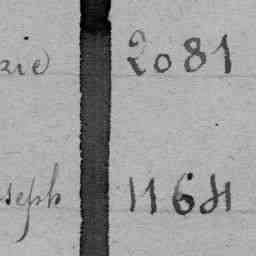 rie 2081
seph 1164